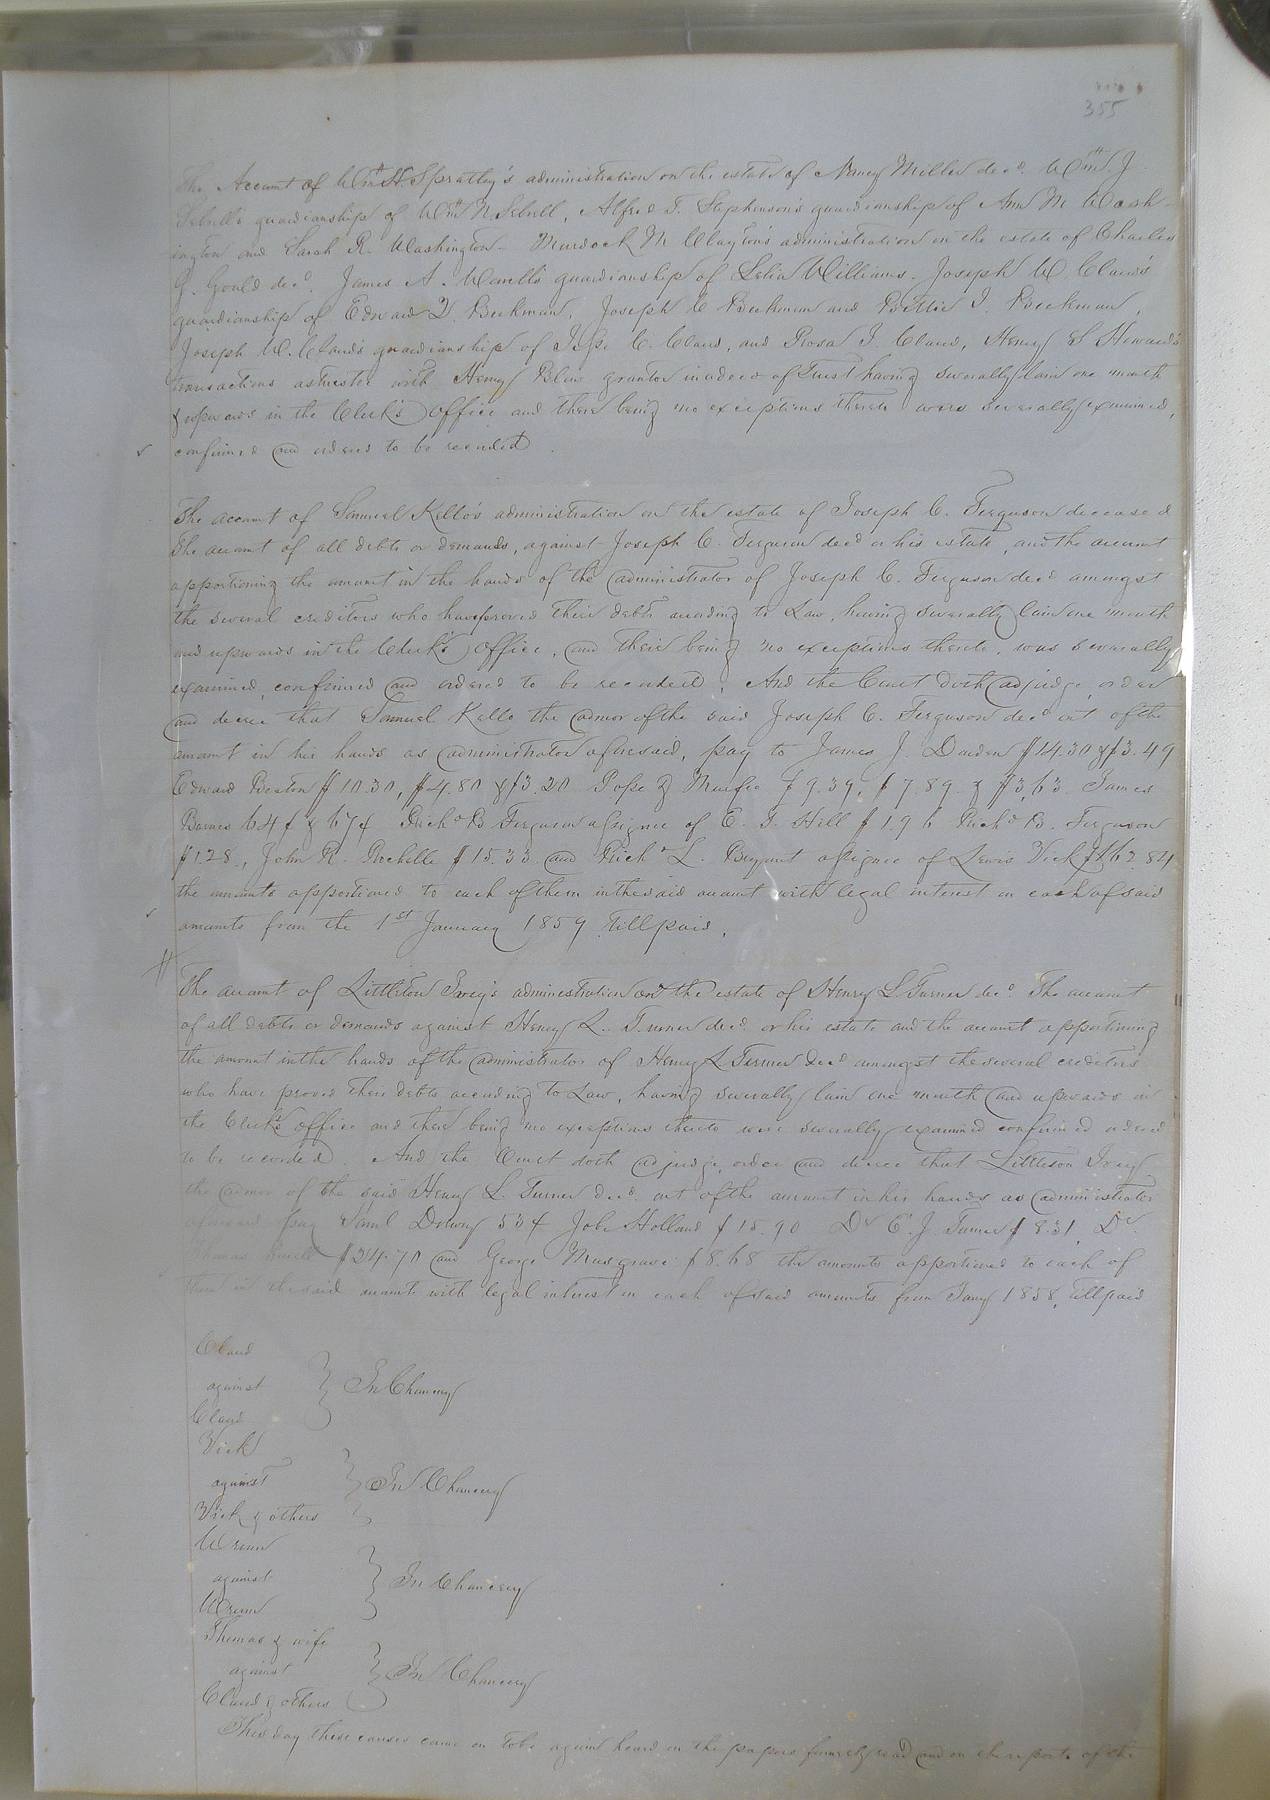 355
The Account of Wm H. Spratley's administration on the estate of Nancy Miller decd. Wm J.
Sebrell's guardianship of Wm N. Sebrell, Alfred T. Stephenson's guardianship of Ann M Wash-
ington and Sarah R. Washington- Murdock M Clayton's administration on the estate of Charles
G. Gould decd. James A. guardianship of Williams. Joseph W Claud's
guardianship of Edward Beekman, Joseph C Beekman and Bettie J. Beekman,
Joseph W. Claud's guardianship of C. Claud, and Rosa J. Claud, Henry S Howard's
transactions as trustee with Henry Blow grantor in a deed of Trust having severally lain one month
& upwards in the Clerk's office and there being no exceptions thereto were severally examined,
confirmed and ordered to be recorded.
The account of Samuel Kello's administration on the estate of Joseph C. Ferguson deceased
The account of all debts or demands, against Joseph C. Ferguson decd or his estate, and the account
apportioning the amount in the hands of the administrator of Joseph C. Ferguson decd amongst
the several creditors who have proved their debts according to Law, having severally lain one month
and upwards in the Clerk's office, and their being no exceptions thereto, was severally
examined, confirmed and ordered to be recorded, And the Court doth adjudge, order
and decree that Samuel Kello the admor of the said Joseph C. Ferguson decd out of the
amount in his hands as administrator aforesaid, pay to James J. Darden $14.30 & $3.49
Edward Beaton $10.30, $4.80 & $3.20 Pope & Murfee $9.39, $7.89 & $3.63 James
Barnes 64¢ & 67¢ Richd B Ferguson assignee of E. T. Hill $1.96 Richd B. Ferguson
$1.28, John R. Rochelle $15.33 and Richd L. Bryant assignee of Lewis Vick
the amounts apportioned to each of them in the said account with legal interest on each of said
amounts from the 1st January 1859 till paid.
The account of Littleton administration on the estate of Henry L Turner decd. The account
of all debts or demands against Henry L. Turner decd or his estate and the account apportioning
the amount in the hands of the administrator of Henry L Turner decd amongst the several creditors
who have proved their debts according to Law, having severally lain one month and upwards in
the Clerk's office and their being no exceptions thereto were severally examined confirmed ordered
to be recorded. And the Court doth adjudge, order and decree that Littleton
the admor of the said Henry L. Turner decd. out of the amount in his hands as administrator
aforesaid pay Saml 53¢ Job Holland $15.90 Dr C. J. Turner $8.31, Dr.
Thomas $24.70 and George Musgrave $8.68 the amounts apportioned to each of
them in the said account with legal interest on each of said amounts from Jany 1858, till paid
Claud
against } In Chancery
Claud
Vick
against } In Chancery
Vick & others
Wrenn
against } In Chancery
Wrenn
Thomas & wife
against } In Chancery
Claud & others
This day these causes came on to be again heard on the papers formerly read and on the report of the